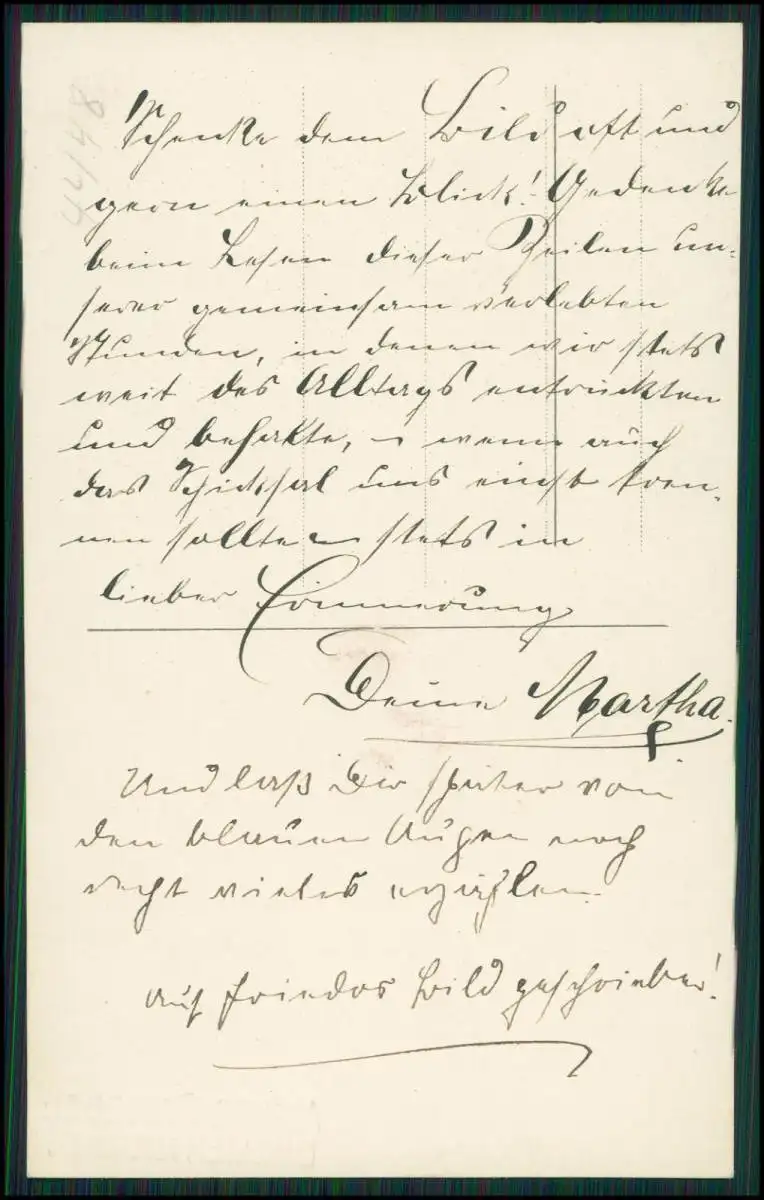 4448
Schenke dem Bild oft und
gern einen Blick! Gedenke
beim Lesen dieser Zeilen un-
serer gemeinsam verlebten
Stunden, in denen wir stets
weit des Alltags entrückten
und behalte, – wenn auch
das Schicksal uns einst tren-
nen sollte – stets in
lieber Erinnerung
Deine Martha.
Und laß Dir später von
den blauen Augen noch
recht vieles erzählen.
Auf Friedas Bild geschrieben!